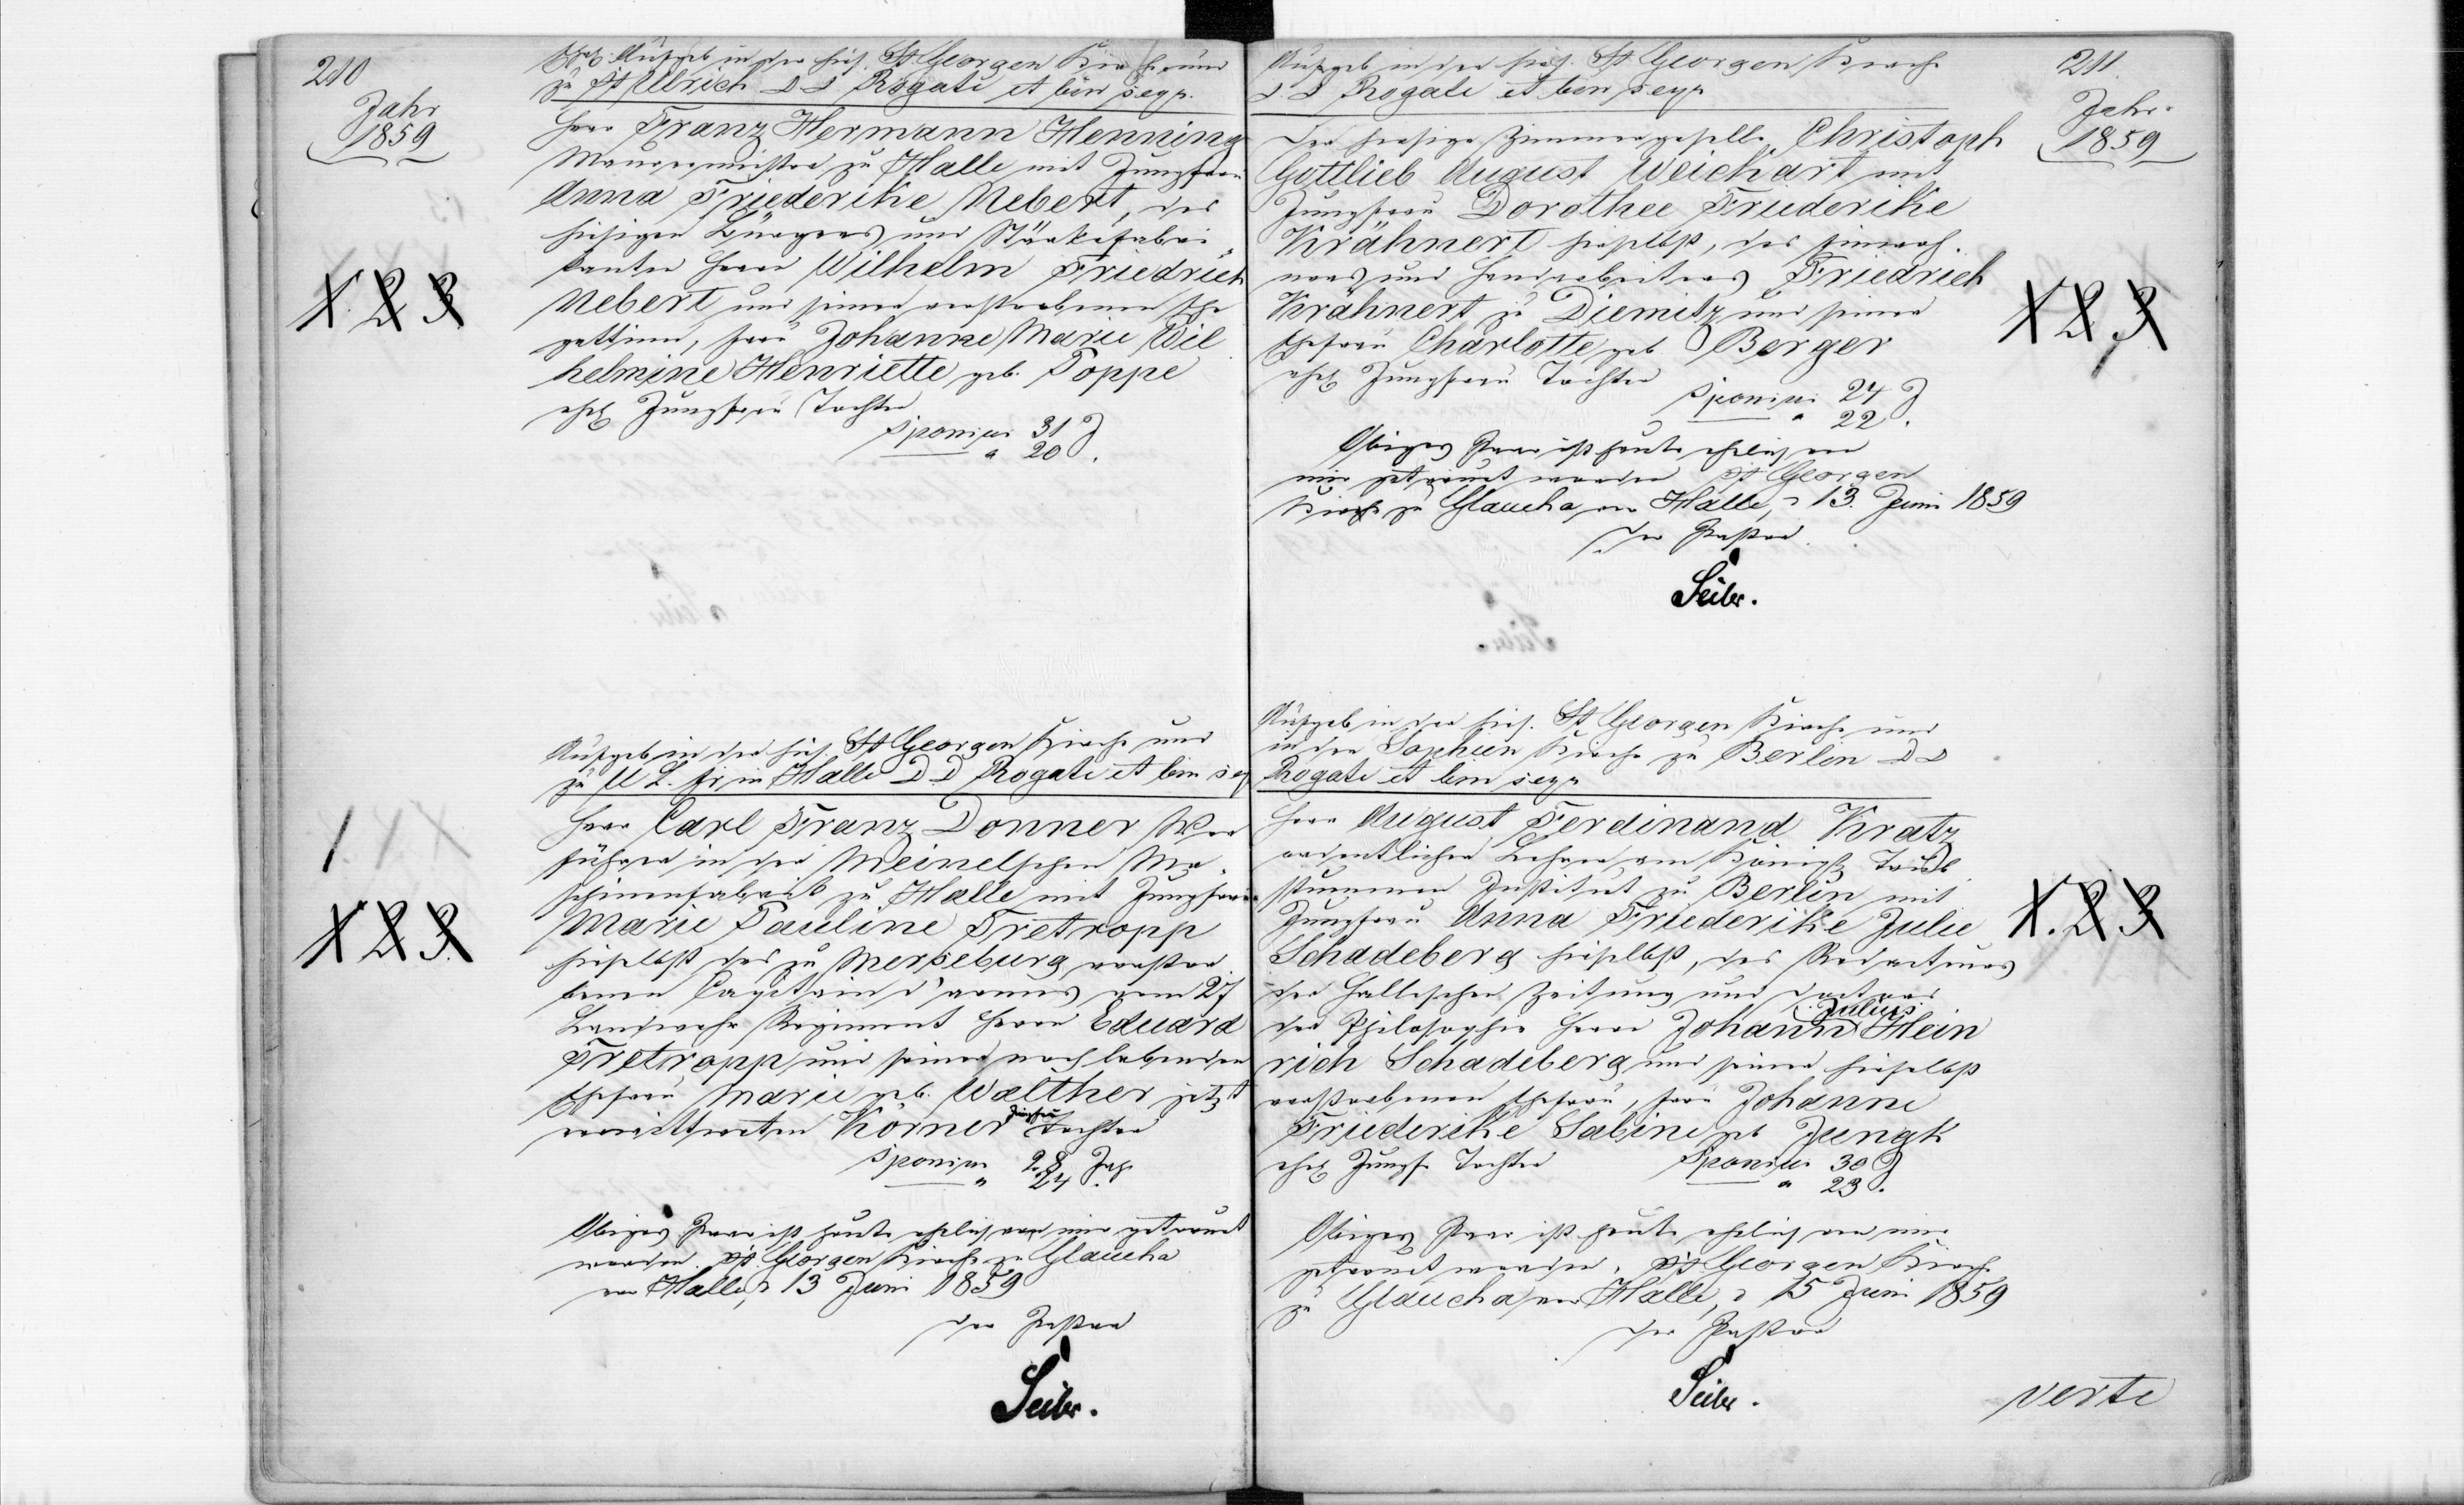 210
Jahr
1859
Aufgeb in der hies. St Georgen Kirche und
zu St Ulrich D D Rogate et bin seqq.
Herr Franz Hermann Henning
Maurermeister zu Halle mit Jungfrau
Anna Friederike Nebert, des
hiesigen Bürgers und Stärkefabri
kanten Herrn Wilhelm Friedrich
Nebert und seiner verstorbenen Ehe
gattinn, Frau Johanne Marie Wil
helmine Henriette geb. Poppe
ehel Jungfrau Tochter
Sponsus 31 J
" 20.
X X X
Aufgeb in der hies. St Georgen Kirche und
zu U L. Fr in Halle D. D Rogate et bin seq
1
Herr Carl Franz Donner Wer
führer in der Meinelschen Ma
schinenfabrik zu Halle mit Jungfrau
Marie Pauline Tretropp
hieselbst des zu Merseburg verstor
benen Capitain d'armes vom 27
Landwehr Regiment Herrn Eduard
Tretropp und seiner noch lebenden
Ehefrau Marie geb. Walther jetzt
verwittweten Körner Jungfrau Tochter
Sponsus 28 Jahr
" 24.
X X X
Obiges Paar ist heute ehelich von mir getraut
worden. St. Georgen Kirche zu Glaucha
an Halle, d 13 Juni 1859
Der Pastor
Seiler.
211.
Jahr
1859
Aufgeb in der hies. St Georgen Kirche
D. D Rogate et bin seqq
Der hiesige Zimmergeselle Christoph
Gottlieb August Weichart mit
Jungfrau Dorothee Friederike
Krähnert hieselbst, des Einwoh
ners und Handarbeiters Friedrich
Krähnert zu Diemitz und seiner
Ehefrau Charlotte geb Berger
ehel Jungfrau Tochter
Sponsus 24 J
" 22.
X X X
Obiges Paar ist heute ehelich von
mir getraut worden St Georgen
Kirche zu Glaucha an Halle, d 13. Juni 1859
Der Pastor
Seiler.
Aufgeb in der hies. St Georgen Kirche und
in der Sophien Kirche zu Berlin D D
Rogate et bin seqq
Herr August Ferdinand Kratz
ordentlicher Lehrer am Königl Taub
stummen Institut zu Berlin mit
Jungfrau Anna Friederike Julie
Schadeberg hieselbst, des Redacteurs
der Hallischen Zeitung und Doctors
der Philosophie Herrn Johann Julius Hein
rich Schadeberg und seiner hieselbst
verstorbenen Ehefrau, Frau Johanne
Friederike Sabine geb Jungk
ehel Jungfr Tochter Sponsus 30 J
" 23.
X. X X
Obiges Paar ist heute ehelich von mir
getraut worden. St Georgen Kirche
zu Glaucha an Halle, d 15 Juni 1859
Der Pastor
Seiler.
verte